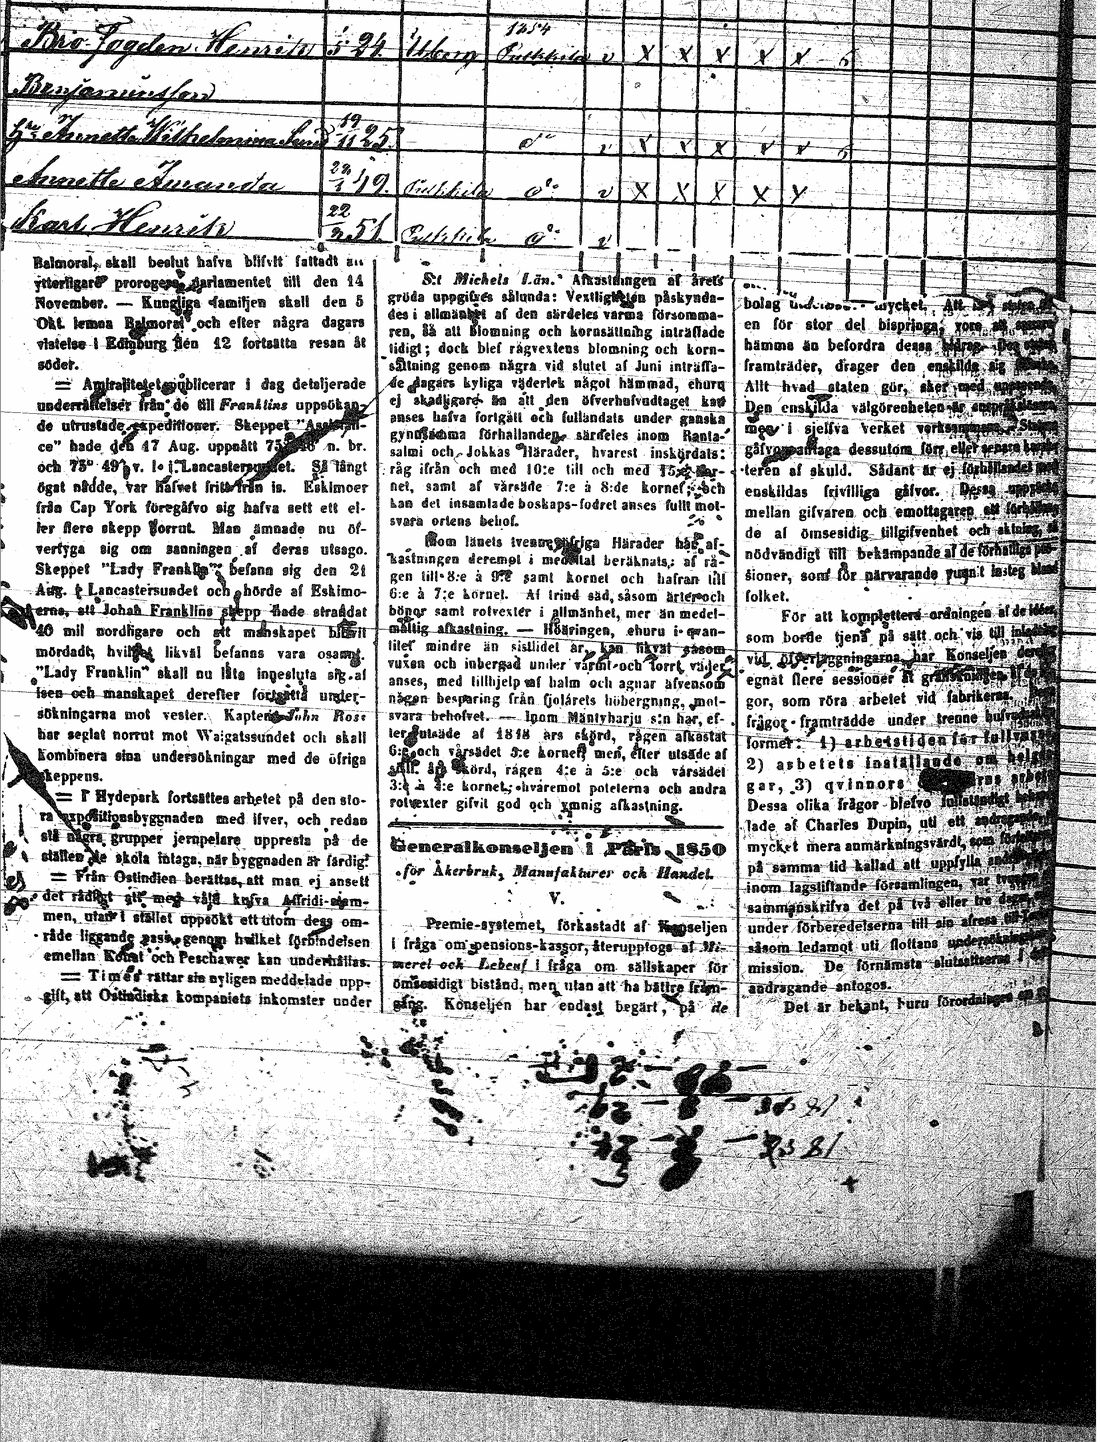 1854
Bro Fogden Henrik 24 Uberg Pulkkila v X X X X X
Benjaminsson
Hu Annette Wilhelmina Lund 19/11 25 do v X X X X X
Annette Amanda 49 Pulkkila do v X X X X X
Karl Henrik 22 51 Pulkkila do v
Balmoral, skall beslut hafva blifvit fattadt an
ytterligare prorogera parlamentet till den 14
November. — Kungliga familjen skall den 5
Okt. lemna Balmoral och efter några dagars
vistelse i Edinburg den 12 fortsätta resan åt
söder.
= Amiralitetet publicerar i dag detaljerade
underrättelser från de till Franklins uppsökan-
de utrustade expeditioner. Skeppet
ce" hade den 17 Aug. uppnått n. br.
och 75° 49' v. l. i Lancastersundet. Så långt
ögat nådde, var hafvet fritt från is. Eskimoer
från Cap York föregåfvo sig hafva sett ett el-
ler flere skepp norrut. Man ämnade nu öf-
vertyga sig om sanningen af deras utsago.
Skeppet "Lady Franklin" befann sig den 21
Aug. i Lancastersundet och hörde af Eskimo-
erna, att Johan Franklins skepp hade strandat
40 mil nordligare och att manskapet blifvit
mördadt, hvilket likväl befanns vara osannt.
"Lady Franklin" skall nu låta innesluta sig af
isen och manskapet derefter fortsätta under-
sökningarna mot vester. Kapten John Ross
har seglat norrut mot Waigatssundet och skall
kombinera sina undersökningar med de öfriga
skeppens.
= I Hydepark fortsättes arbetet på den sto-
ra expositionsbyggnaden med ifver, och redan
stå några grupper jernpelare uppresta på de
ställen de skola intaga, når byggnaden är färdig.
= Från Ostindien berättas, att man ej ansett
det rådligt att med våld kufva Affridi-stam-
men, utan i stället uppsökt ett utom dess om-
råde liggande pass, genom hvilket förbindelsen
emellan Kohat och Peschawer kan underhållas.
= Times rättar sin nyligen meddelade upp-
gift, att Ostindiska kompaniets inkomster under
S:t Michels Län. Afkastningen af årets
gröda uppgifves sålunda: Vextligheten påskynda-
des i allmänhet af den särdeles varma försomma-
ren, så att blomning och kornsättning inträffade
tidigt; dock blef rågvextens blomning och korn-
sättning genom några vid slutet af Juni inträffa-
de dagars kyliga väderlek något hämmad, ehuru
ej skadligare än att den öfverhufvudtaget kan
anses hafva fortgått och fulländats under ganska
gynnsamma förhållanden, särdeles inom Ranta-
salmi och Jokkas Härader, hvarest inskördats:
råg ifrån och med 10:e till och med 15:e kor-
net, samt af vårsäde 7:e à 8:de kornet; och
kan det insamlade boskaps-fodret anses fullt mot-
svara ortens behof.
Inom länets tvenne öfriga Härader har af-
kastningen deremot i medeltal beräknats: af rå-
gen till 8:e à 9:e samt kornet och hafran till
6:e à 7:e kornet. Af trind säd, såsom ärter och
bönor samt rotvexter i allmänhet, mer än medel-
måttig afkastning. — Höäringen, ehuru i qvan-
titet mindre än sistlidet år, kan likväl såsom
vuxen och inbergad under varmt och torrt väder
anses, med tillhjelp af halm och agnar äfvensom
någon besparing från fjolårets höbergning, mot-
svara behofvet. — Inom Mäntyharju s:n har, ef-
ter utsäde af 1848 års skörd, rågen afkastat
6:e och vårsädet 5:e kornet; men, efter utsäde af
års skörd, rågen 4:e à 5:e och vårsädet
3:e à 4:e kornet; hvaremot poteterna och andra
rotvexter gifvit god och ymnig afkastning.
Generalkonseljen i Paris 1850
för Åkerbruk, Manufakturer och Handel.
V.
Premie-systemet, förkastadt af Konseljen
i fråga om pensions-kassor, återupptogs af Mi-
merel och Lebeuf i fråga om sällskaper för
ömsesidig bistånd, men utan att ha bättre fram-
gång. Konseljen har endast begärt, på de
bolag mycket. Att
en för stor del bispringa, vore
hämma än befordra dessa
framträder, drager den enskilda sig
Allt hvad staten gör, sker med
Den enskilda välgörenheten är
men i sjelfva verket verksammare. Statens
gåfvor antaga dessutom förr eller senare karak-
teren af skuld. Sådant är ej förhållandet med
enskildas frivilliga gåfvor. Dessa
mellan gifvaren och emottagaren ett förhållan-
de af ömsesidig tillgifvenhet och aktning, så
nödvändigt till bekämpande af de förhatliga pas-
sioner, som för närvarande vunnit insteg bland
folket.
För att komplettera ordningen af de idéer,
som borde tjena på sätt och vis till inledning
vid öfverläggningarna, har Konseljen
egnat flere sessioner åt granskningen af de
gor, som röra arbetet vid fabrikerna. Dessa
frågor framträdde under trenne hufvud-
former: 1) arbetstiden för fullvuxna
2) arbetets inställande om helge-
gar, 3) qvinnors arbete.
Dessa olika frågor blefvo fullständigt
lade af Charles Dupin, uti ett andragande
mycket mera anmärkningsvärdt, som författaren
på samma tid kallad att uppfylla andra
inom lagstiftande församlingen, var tvungen
sammanskrifva det på två eller tre dagar
under förberedelserna till sin afresa till
såsom ledamot uti flottans undersöknings-
mission. De förnämsta slutsatserna i detta
andragande antogos.
Det är bekant, huru förordningen